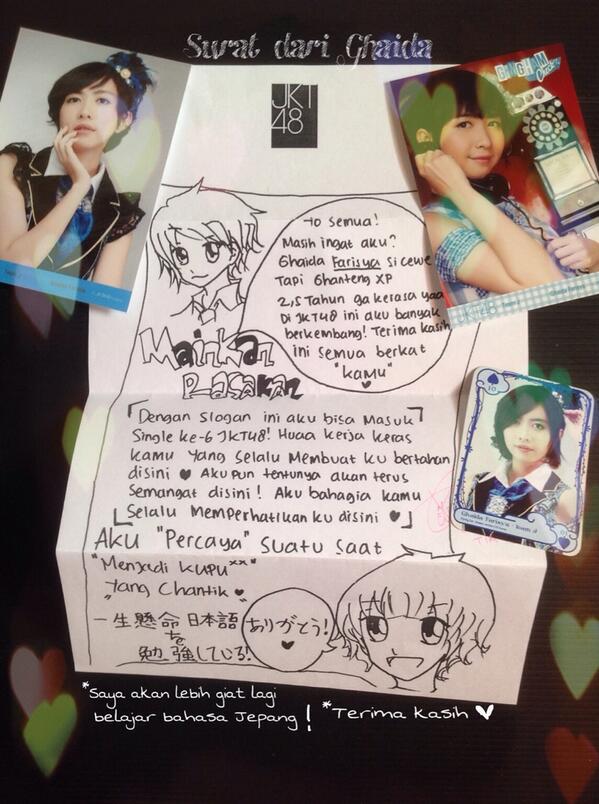 Surat dari Ghaida
JKT
48
GINGHAM
Check
to semua!
Masih ingat aku?
Ghaida Farisya si cewe
Tapi Ghanteng XP
2,5 Tahun ga kerasa yaa
Di JKT48 ini aku banyak
berkembang! Terima kasih
ini semua berkat
"kamu"
Mainkan
Rasakan
Dengan slogan ini aku bisa Masuk
Single ke-6 JKT48! Huaa kerja keras
kamu yang selalu Membuat ku bertahan
disini ♥ Aku pun tentunya akan terus
Semangat disini! Aku bahagia kamu
Selalu memperhatikan ku disini ♥
10
Ghaida Farisya - Team J
Aku "Percaya" suatu saat
"Menjadi KUPU ××"
"Yang Chantik ♥
一生懸命 日本語
を
勉強している!
ありがとう!
*Saya akan lebih giat lagi
belajar bahasa Jepang!
*Terima kasih ♥